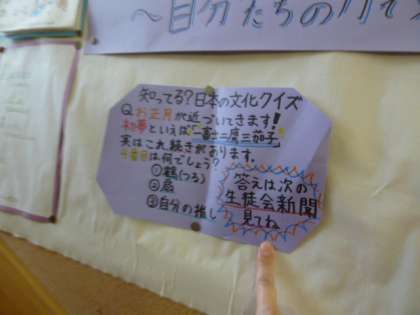 ～自分たちの
知ってる？日本の文化クイズ
Q.お正月が近づいてきます！
初夢といえば"一富士二鷹三茄子"
実はこれ続きがあります。
十番目は何でしょう？
①鶴(つる)
②扇
③自分の推し
答えは次の
生徒会新聞
見てね